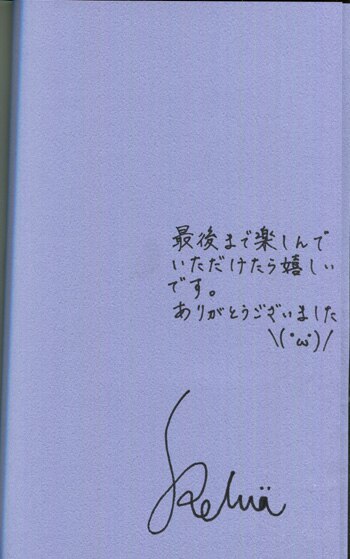 最後まで楽しんで
いただけたら嬉しい
です。
ありがとうございました
\(･ω･)/